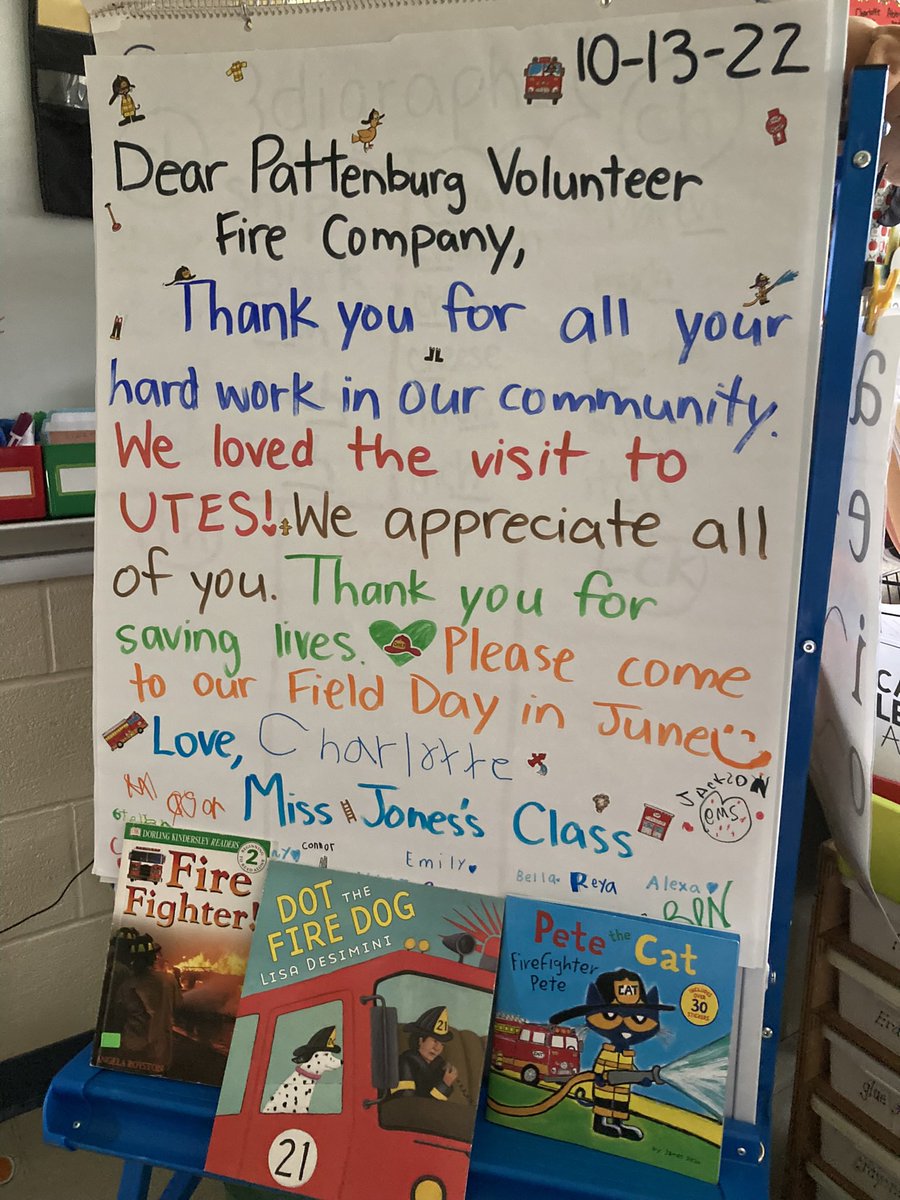 10-13-22
Dear Pattenburg Volunteer
Fire Company,
Thank you for all your
hard work in our community.
We loved the visit to
UTES! We appreciate all
of you. Thank you for
saving lives.
Please come
to our Field Day in June
Love, Charlotte
Miss Jones's Class
JACKSON
EMS
Connor
Emily
Bella
Reya
Alexa
BEN
DORLING KINDERSLEY READERS
2
Fire
Fighter!
ANGELA ROYSTON
DOT THE
FIRE DOG
LISA DESIMINI
21
21
Pete the Cat
Firefighter
Pete
CAT
INCLUDES
OVER
30
STICKERS
CAT
by James Dean
a
e
i
o